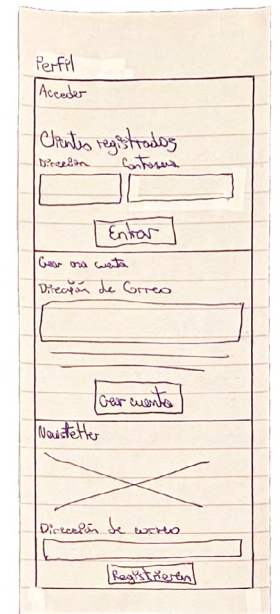 Perfil
Acceder
Clientes registrados
Dirección Contraseña
Entrar
Crear una cuenta
Dirección de Correo
Crear cuenta
Newsletter
Dirección de correo